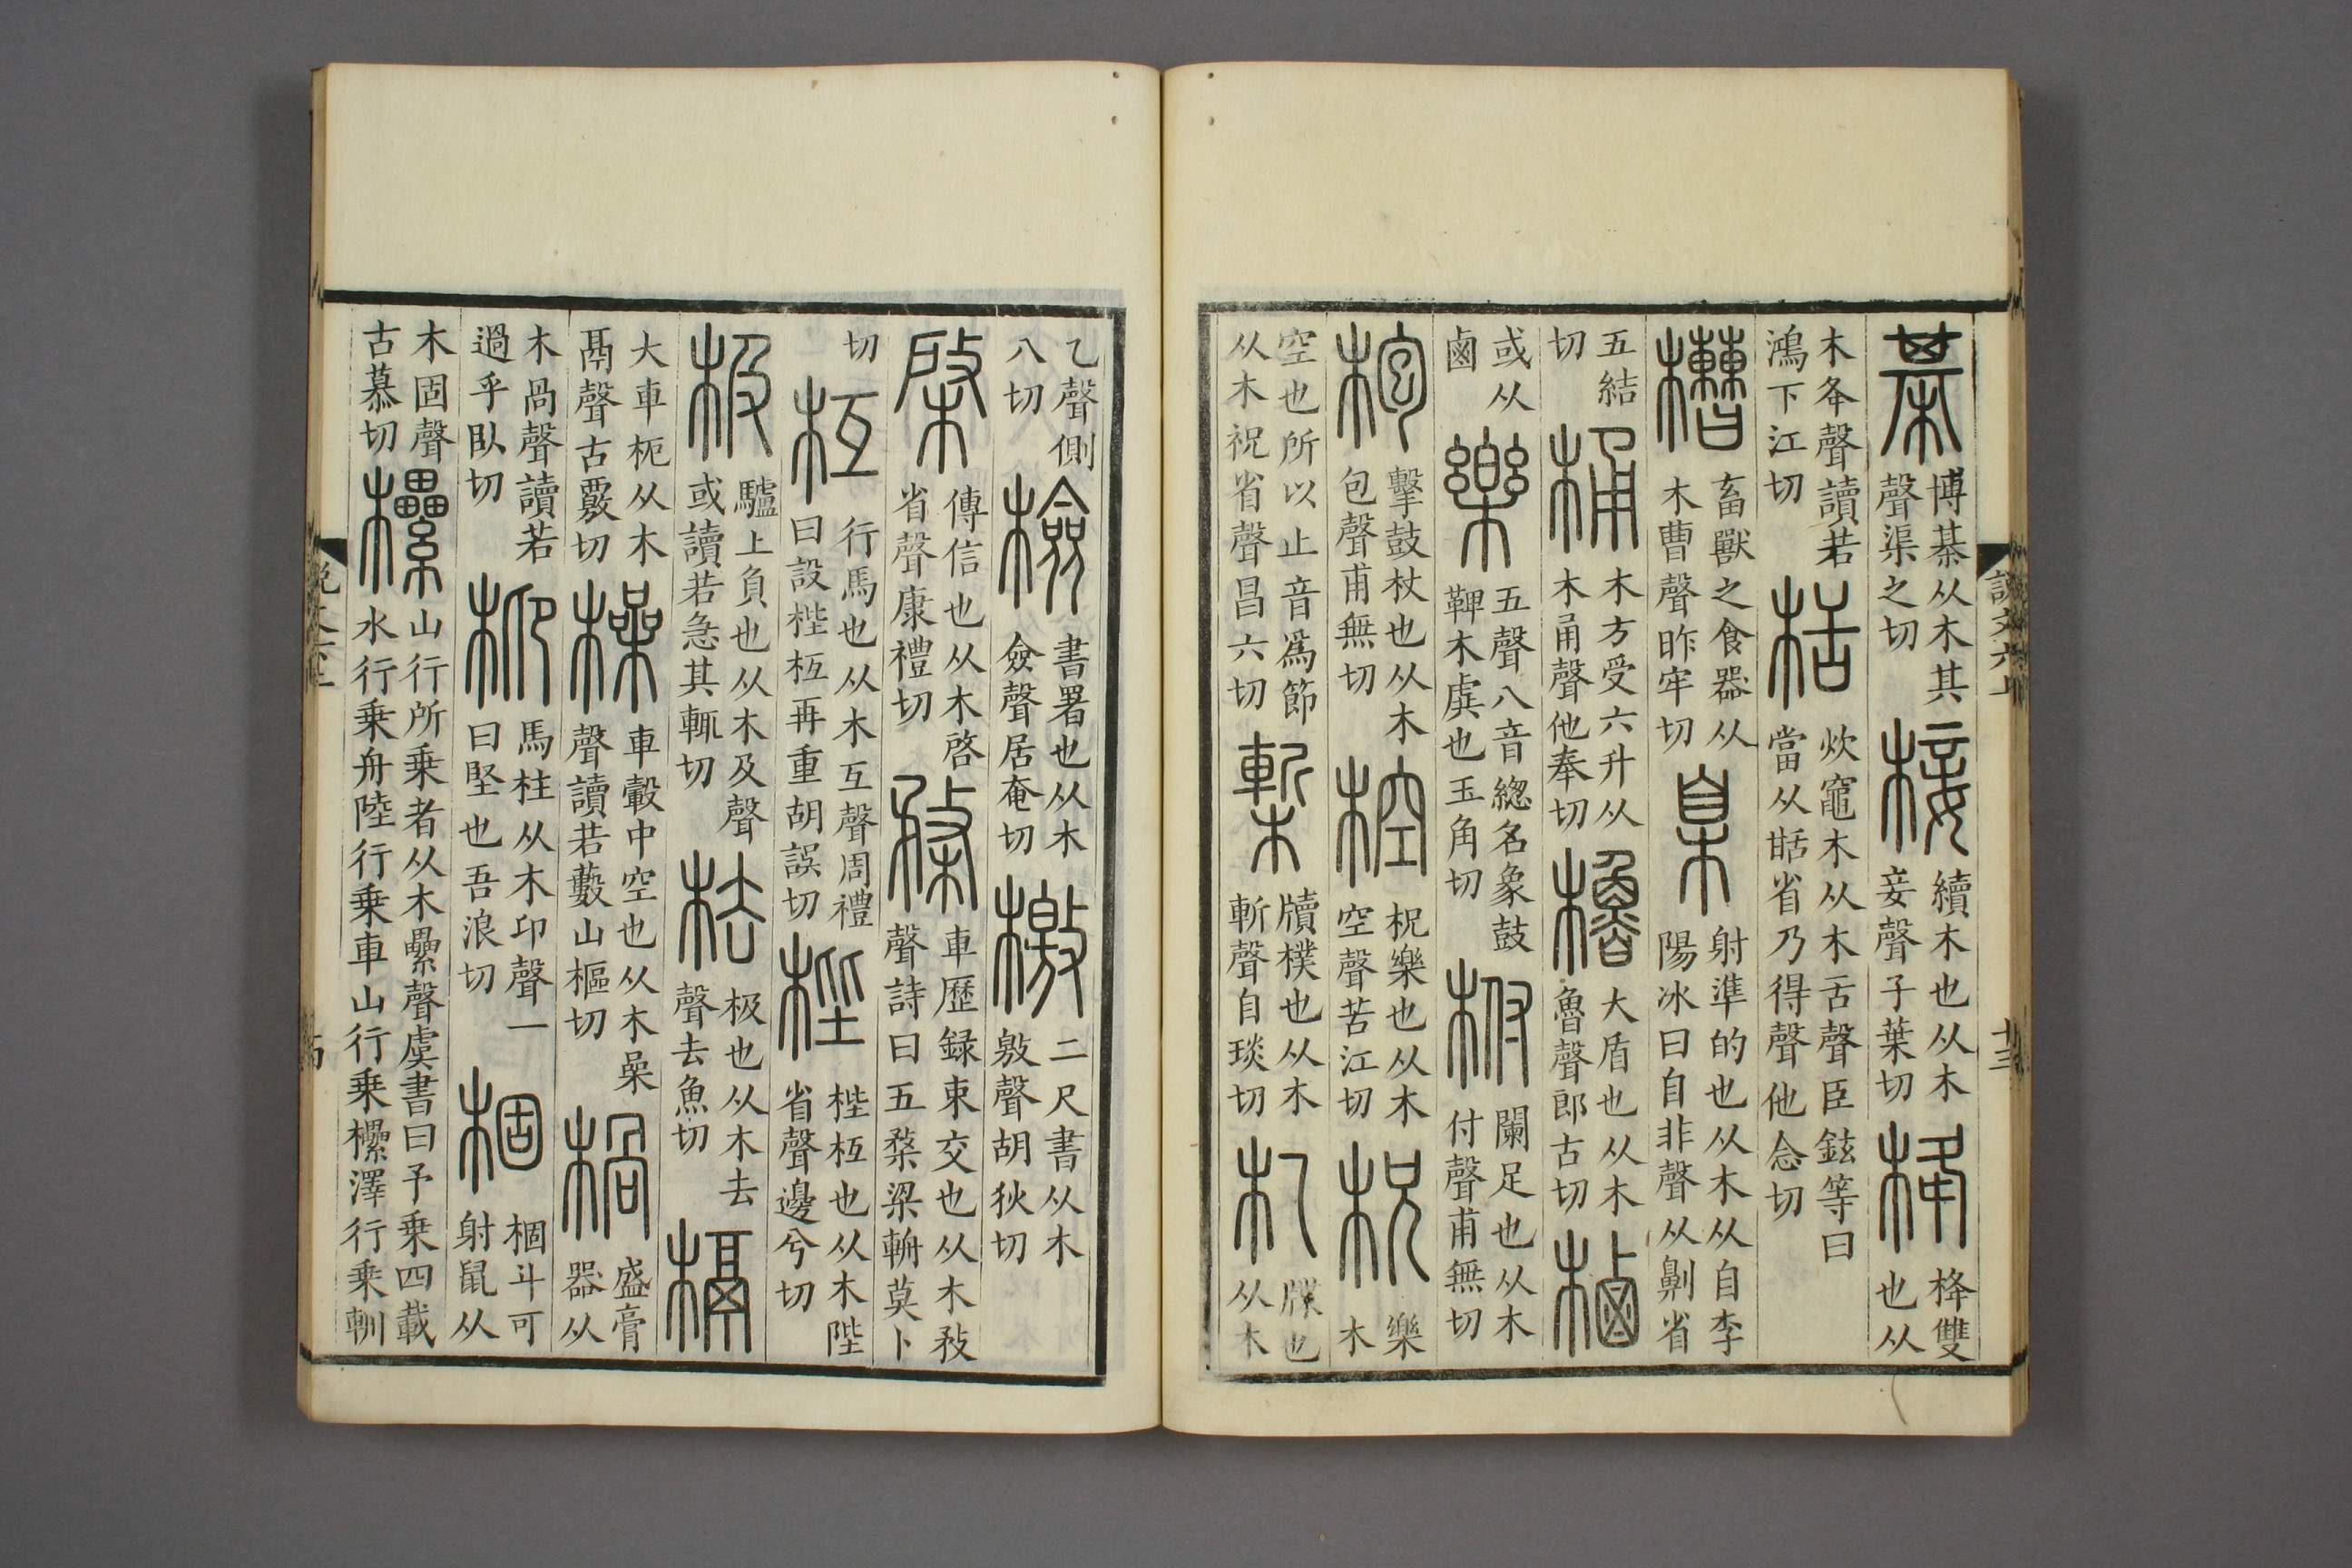 說文六上 十三
棊博棊从木其聲渠之切椄續木也从木妾聲子葉切栙栙雙也从
木夅聲讀若鴻下江切栝炊竈木从木舌聲臣鉉等曰當从甛省乃得聲他念切
槽畜獸之食器从木曹聲昨牢切臬射準的也从木从自李陽冰曰自非聲从劓省
五結切桶木方受六升从木甬聲他奉切櫓大盾也从木魯聲郎古切樐
或从鹵樂五聲八音緫名象鼓鞞木虡也玉角切柎闌足也从木付聲甫無切
枹擊鼓杖也从木包聲甫無切椌柷樂也从木空聲苦江切柷樂木
空也所以止音爲節从木祝省聲昌六切槧牘樸也从木斬聲自琰切札牒也从木
乙聲側八切檢書署也从木僉聲居奄切檄二尺書从木敫聲胡狄切
棨傳信也从木啓省聲康禮切楘車歷録束交也从木敄聲詩曰五楘梁輈莫卜
切枑行馬也从木互聲周禮曰設梐枑再重胡誤切梐梐枑也从木陛省聲邊兮切
极驢上負也从木及聲或讀若急其輒切㭕极也从木去聲去魚切槅
大車枙从木鬲聲古覈切橾車轂中空也从木喿聲讀若藪山樞切楇盛膏器从
木咼聲讀若過乎臥切枊馬柱从木卬聲一曰堅也吾浪切棝棝斗可射鼠从
木固聲古慕切欙山行所乗者从木纍聲虞書曰予乗四載水行乗舟陸行乗車山行乗欙澤行乗䡅